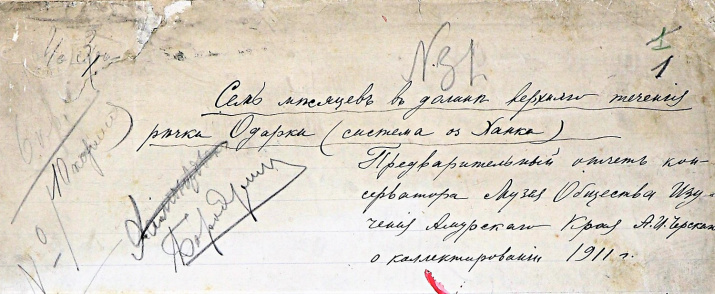 N 31
1
Семь мѣсяцевъ въ долинѣ верхняго теченія
рѣчки Одарки (система оз Ханка)
Предварительный отчетъ кон-
серватора Музея Общества Изу-
ченія Амурскаго Края А.И. Черскаго
о коллектированіи 1911 г.